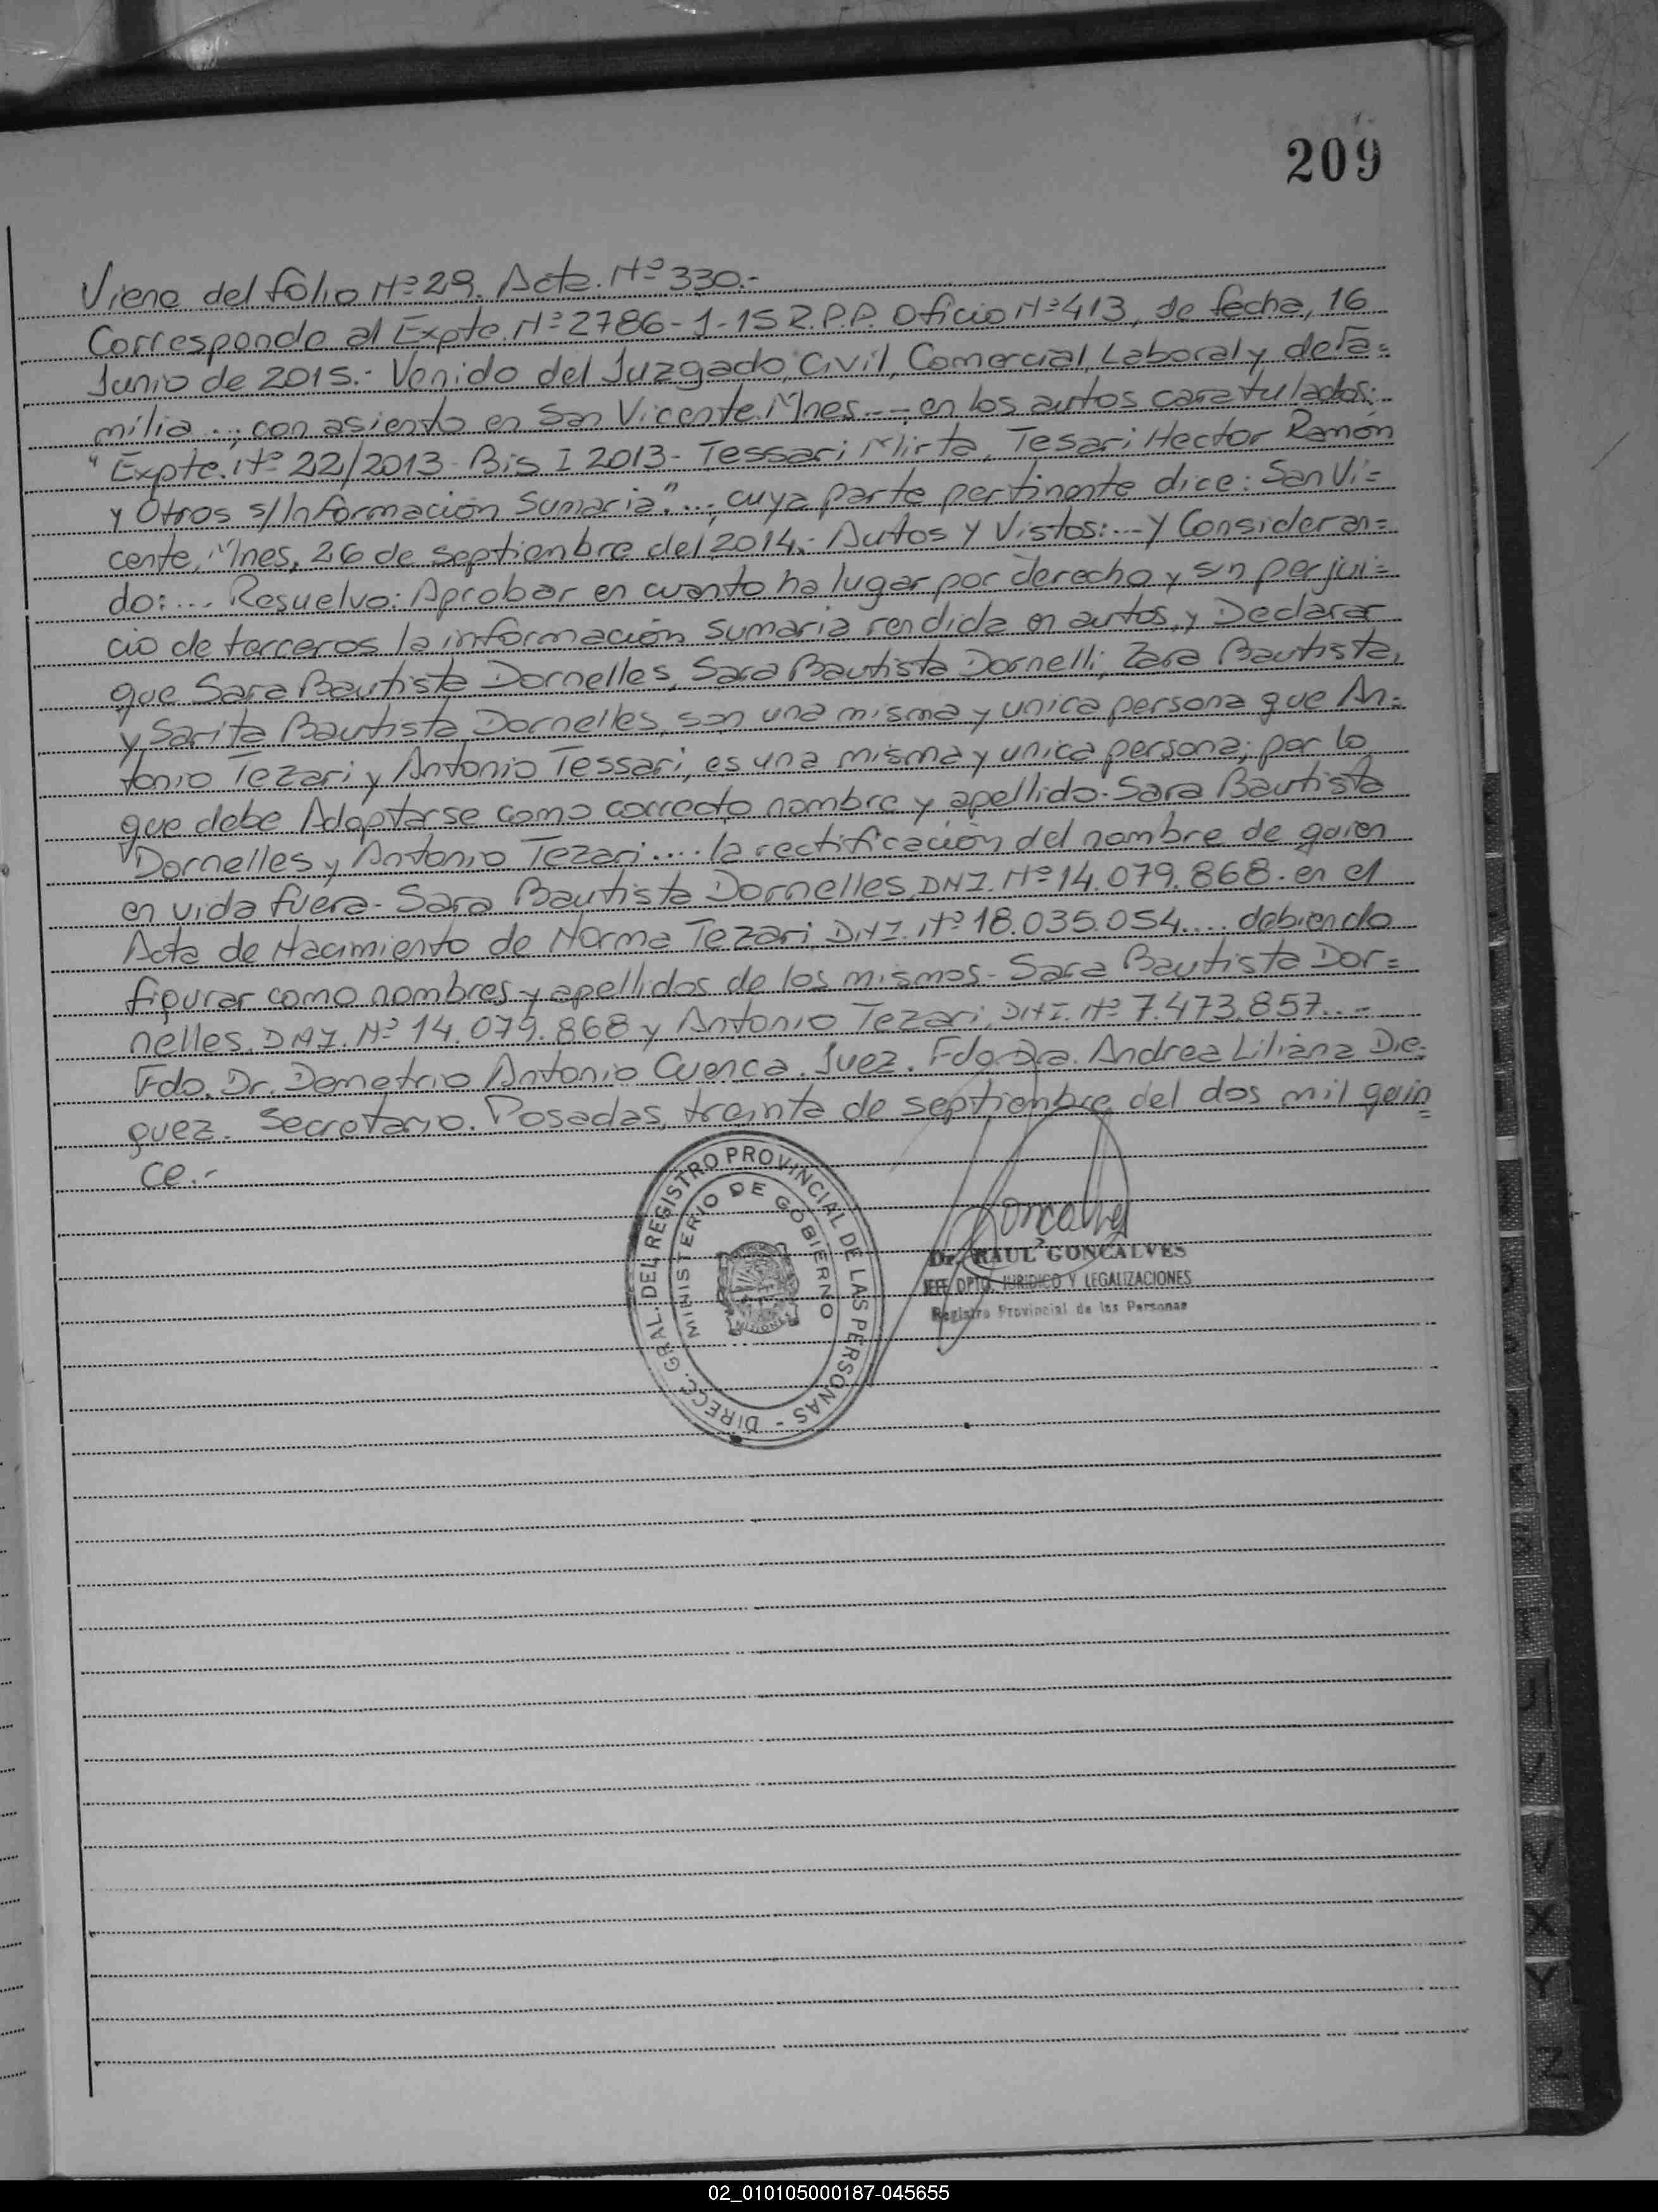 209
Viene del folio Nº 29. Acta. Nº 330.-
Corresponde al Expte. Nº 2786-1-15 R.P.P. Oficio Nº 413, de fecha, 16
Junio de 2015.- Venido del Juzgado, Civil, Comercial, Laboral y de Fa=
milia..; con asiento en San Vicente. Mnes.--; en los autos caratulados:.
"Expte. Nº 22/2013- Bis I 2013- Tessari Mirta, Tesari Hector Ramón
y Otros s/Información Sumaria"...; cuya parte pertinente dice: San Vi=
cente, Mnes, 26 de septienbre del 2014.- Autos y Vistos:... Y Consideran=
do:... Resuelvo: Aprobar en cuanto ha lugar por derecho y sin perjui=
cio de terceros la información sumaria rendida en autos, y Declarar
que Sara Bautista Dornelles, Sara Bautista Dornelli; Zara Bautista,
y Sarita Bautista Dornelles, son una misma y unica persona que An=
tonio Tezari y Antonio Tessari, es una misma y unica persona; por lo
que debe Adoptarse como correcto nombre y apellido- Sara Bautista
Dornelles y Antonio Tezari.... la rectificación del nombre de quien
en vida fuera- Sara Bautista Dornelles, DNI. Nº 14.079.868. en el
Acta de Nacimiento de Norma Tezari, DNI. Nº 18.035.054.... debiendo
figurar como nombres y apellidos de los mismos- Sara Bautista Dor=
nelles, DNI. Nº 14.079.868 y Antonio Tezari, DNI. Nº 7.473.857...-
Fdo. Dr. Demetrio Antonio Cuenca. Juez. Fdo Dra. Andrea Liliana Die=
guez. Secretario. Posadas, treinta de septienbre del dos mil quin=
ce.-
DIRECC. GRAL. DEL REGISTRO PROVINCIAL DE LAS PERSONAS -
MINISTERIO DE GOBIERNO
MISIONES
Goncalves
Dr. RAUL GONCALVES
JEFE DPTO. JURIDICO Y LEGALIZACIONES
Registro Provincial de las Personas
V
X
Y
Z
02_010105000187-045655